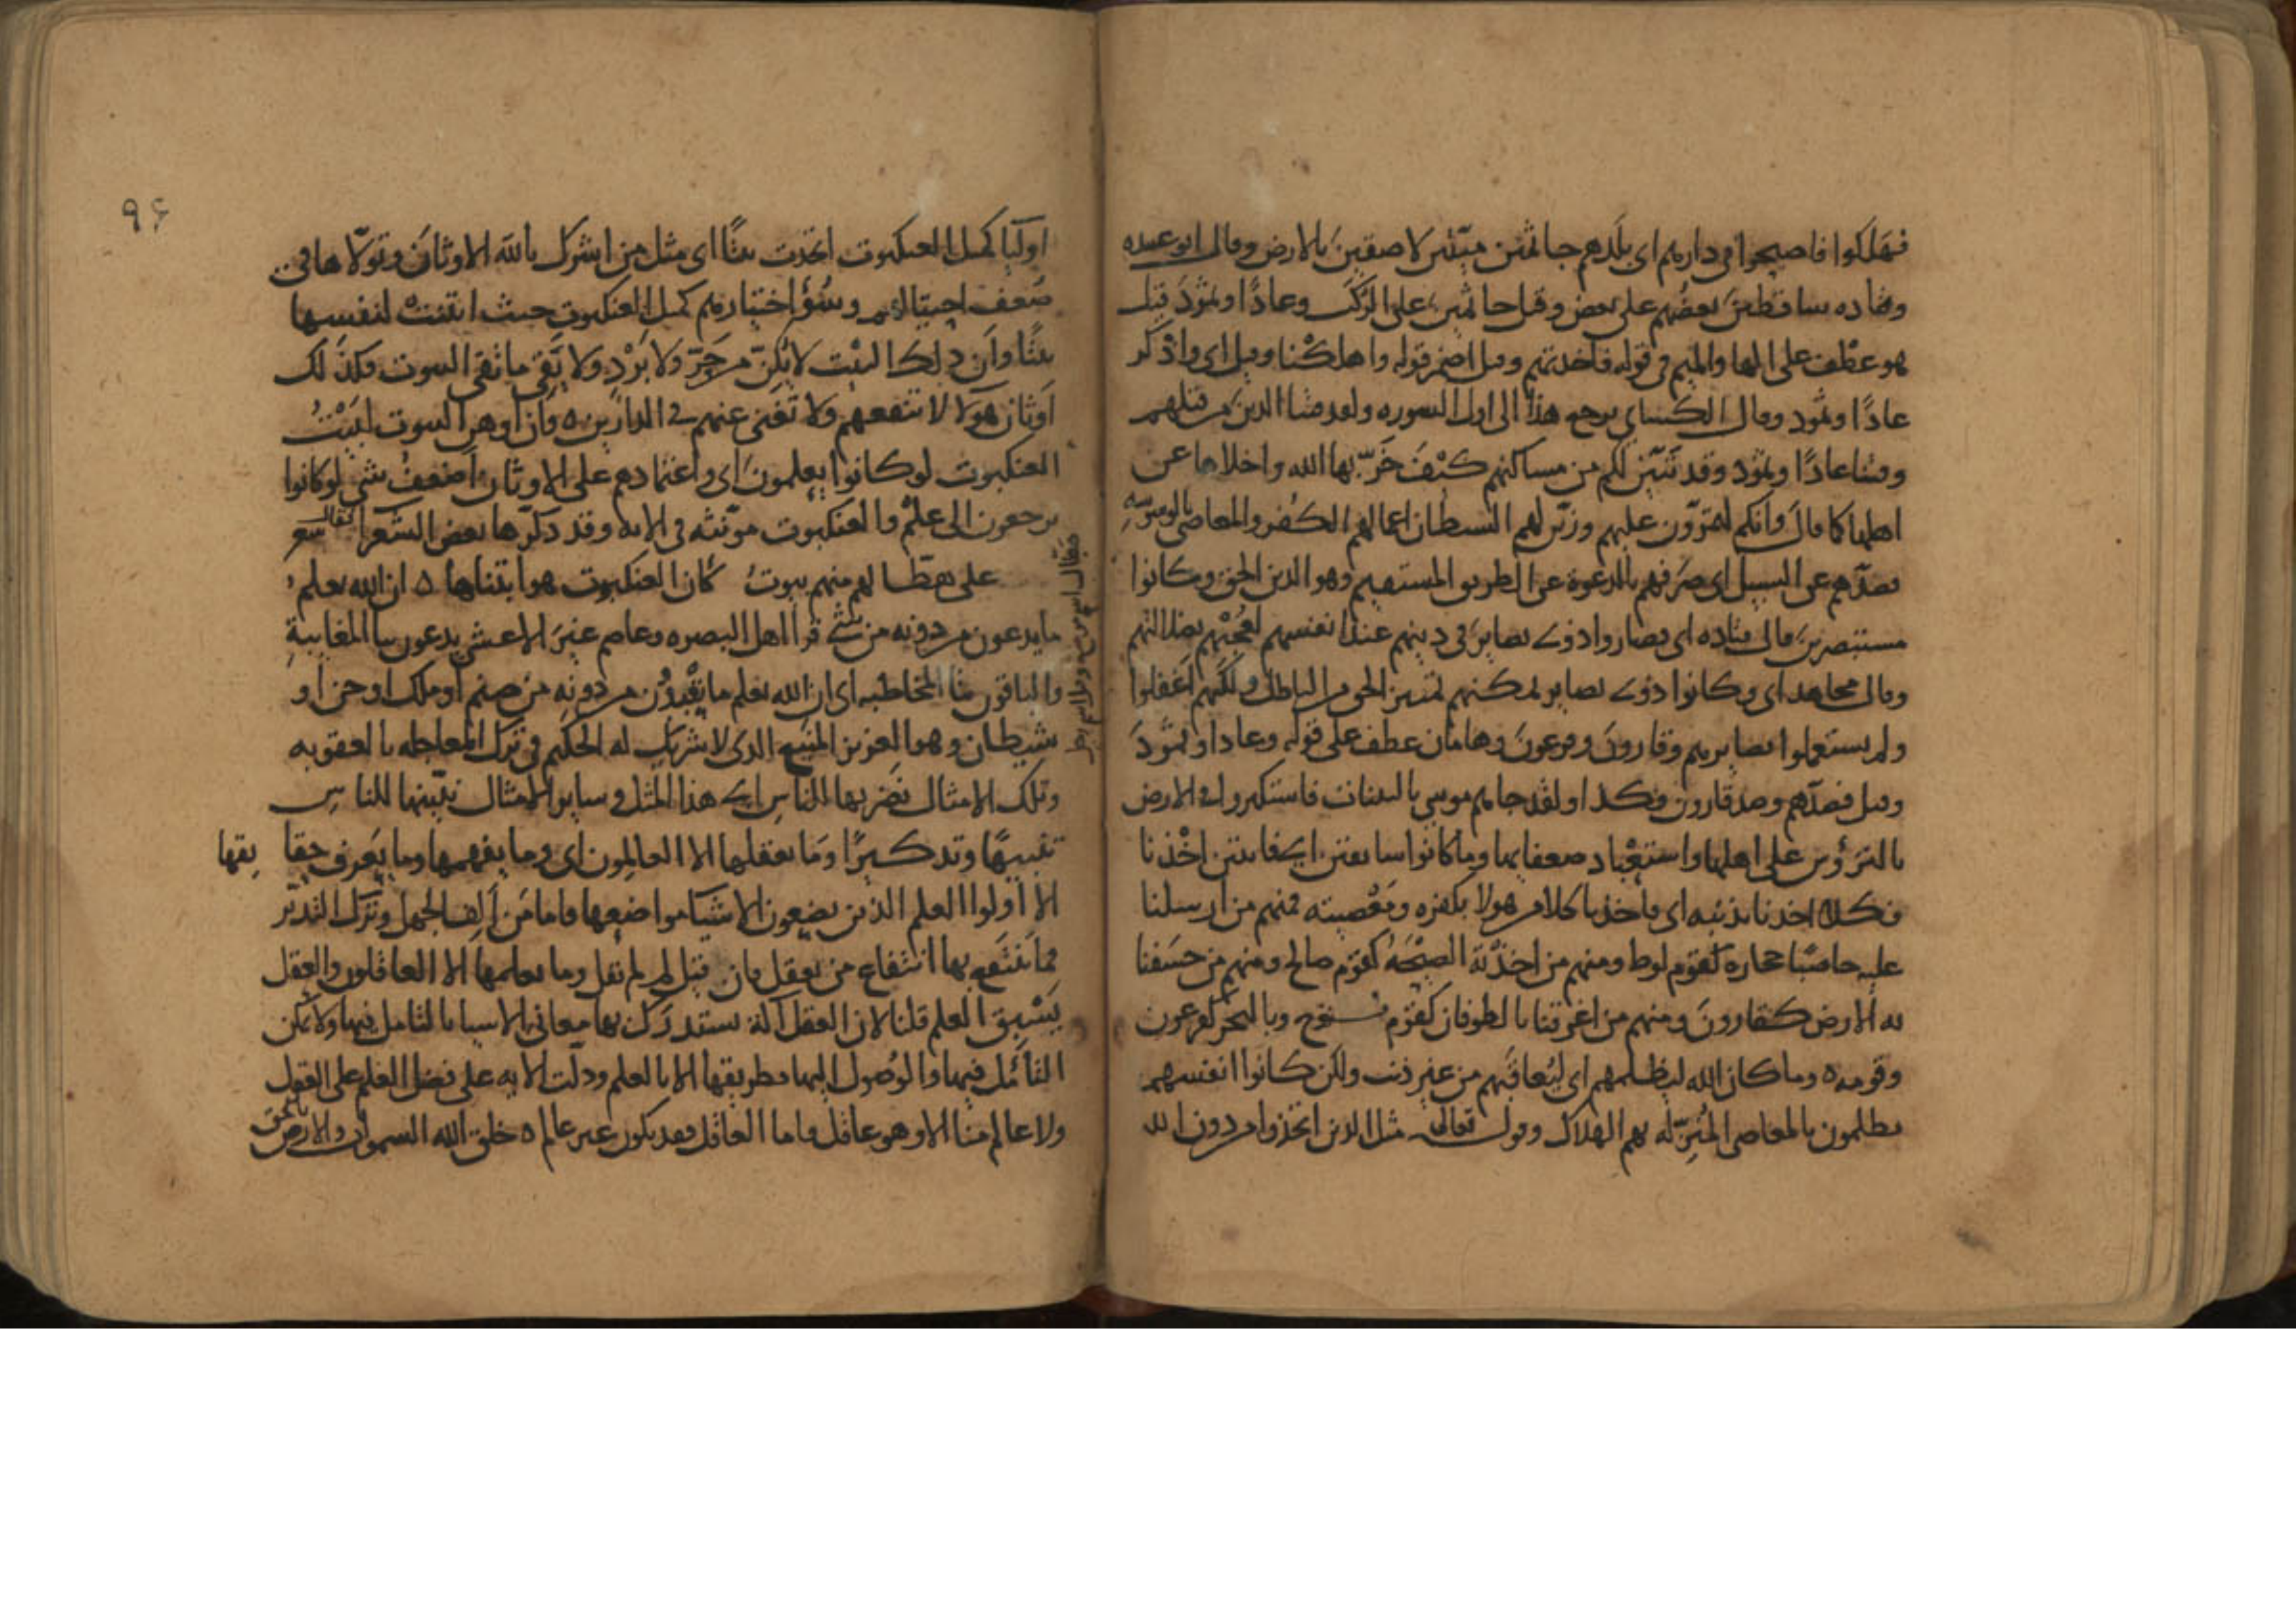 فهلكوا فاصبحوا في دارهم اي بلدهم جاثمين ميّتين لاصقين بالارض وقال ابو عبيده
وقتاده ساقطين بعضهم على بعض وقيل جاثمين على الركب وعادًا وثمودَ قيل
هو عطف على الها والميم في قوله فاخذتهم وقيل اضمر قوله واهلكنا وقيل اي واذكر
عادًا وثمود وقال الكسائي يرجع هذا الى اول السوره ولقد فتنا الذين من قبلهم
وفتنا عادًا وثمود وقد تبيّن لكم من مساكنهم كيف خرّبها الله واخلاها عن
اهلها كما قال وانكم لتمرّون عليهم وزيّن لهم الشيطان اعمالهم الكفر والمعاصي بالوسوسه
فصدّهم عن السبيل اي صرفهم بالدعوة عن الطريق المستقيم وهو الدين الحق وكانوا
مستبصرين قال قتاده اي فصاروا ذوي بصاير في دينهم عند انفسهم لعجبهم بضلالتهم
وقال مجاهد اي وكانوا ذوي بصاير يمكنهم تمييز الحق من الباطل ولكنهم اغفلوا
ولم يستعملوا بصايرهم وقارون وفرعون وهامان عطف على قوله وعادا وثمودَ
وقيل فصدّهم وصد قارون وكذا ولقد جاهم موسى بالبينات فاستكبروا في الارض
بالترؤس على اهلها واستعباد ضعفايها وما كانوا سابقين اي فايتين اخذنا
فكلا اخذنا بذنبه اي فاخذنا كلا من هولا بكفره ومعصيته فمنهم من ارسلنا
عليه حاصبًا حجاره كقوم لوط ومنهم من اخذته الصيحة كقوم صالح ومنهم من خسفنا
به الارض كقارون ومنهم من اغرقنا بالطوفان كقوم نوح وبالبحر كفرعون
وقومه ه وما كان الله ليظلمهم اي ليعاقبهم من غير ذنب ولكن كانوا انفسهم
يظلمون بالمعاصي المنزّله بهم الهلاك وقوله تعالى مثل الذين اتخذوا من دون الله
٩٤
اوليا كمثل العنكبوت اتخذت بيتًا اي مثل من اشرك بالله الاوثان وتولّاها في
ضعف احتيالهم وسُؤ اختيارهم كمثل العنكبوت حيث لنفسها
بيتًا وان ذلك البيت لا يُكنّ من حرّ ولا برْدٍ ولا يقي ما تقي البيوت وكذلك
اوثان هولا لا تنفعهم ولا تغني عنهم في الدارين ه وان اوهن البيوت لبيْتُ
العنكبوت لو كانوا يعلمون اي واعتمادهم على الاوثان اضعف شي لو كانوا
يرجعون الى علم والعنكبوت مؤنثه في الايه وقد ذكّرها بعض الشعرا فقال شعر
على هطّالهم منهم بيوتُ كأن العنكبوت هو ابتناها ه ان الله يعلم
ما يدعون من دونه من شي قرا اهل البصره وعاصم غير الاعشى يدعون بيا المغايبة
والباقون بتا المخاطبه اي ان الله يعلم ما يعْبدُون من دونه من صنم او ملك او جن او
شيطان وهو العزيز المنيع الذي لا شريك له الحكيم في ترك المعاجله بالعقوبه
وتلك الامثال نضربها للناس اي هذا المثل وساير الامثال نبيّنها للناس
تنبيهًا وتذكيرًا وما يعقلها الا العالمون اي وما يفهمها وما يعرف حقا يقها
الا اولوا العلم الذين يضعون الاشيا مواضعها فاما من الف الجهل وترك التدبّر
فما ينتفع بها انتفاع من يعقل فان قيل لم لم يقل وما يعلمها الا العاقلون والعقل
يَسْبق العلم قلنا لان العقل آلة يستدرك بها معاني الاشيا بالتامل فيها ولا يمكن
التأمّل فيها والوُصول اليها بطريقها الا بالعلم ودلّت الايه على فضل العلم على العقل
ولا عالم منا الا وهو عاقل فاما العاقل فقد يكون غير عالم ه خلق الله السموات والارض بالحق